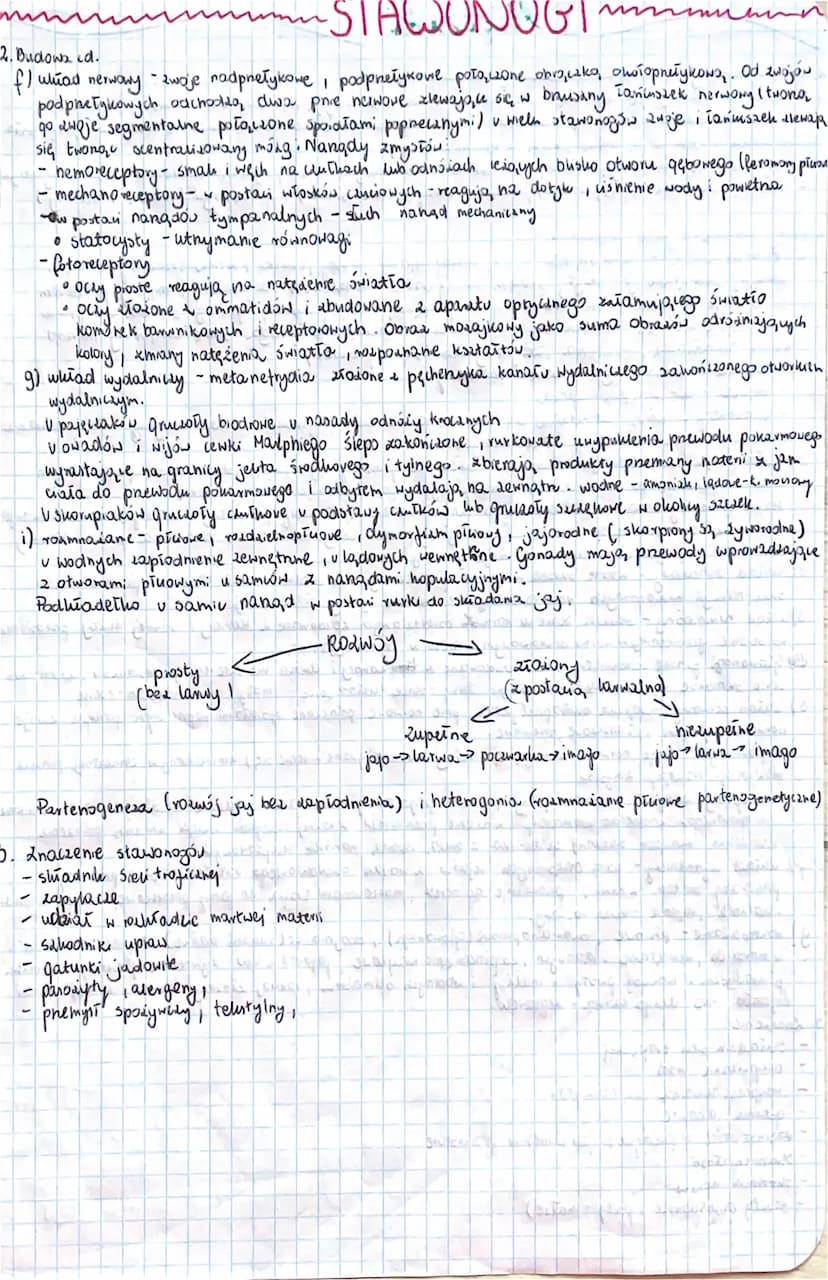 STAWONOGI
2. Budowa cd.
f) układ nerwowy - zwoje nadprzełykowe, podprzełykowe połączone obrączką okołoprzełykową. Od zwojów
podprzełykowych odchodzą dwa pnie nerwowe zlewające się w brzuszny łańcuszek nerwowy (tworzą
go zwoje segmentalne połączone spoidłami poprzecznymi) u wielu stawonogów zwoje i łańcuszek zlewają
się tworząc scentralizowany mózg. Narządy zmysłów:
- hemoreceptory - smak i węch na czułkach lub odnóżach leżących blisko otworu gębowego (feromony płciowe
- mechanoreceptory - w postaci włosków czuciowych - reagują na dotyk, ciśnienie wody i powietrza
- w postaci narządów tympanalnych - słuch narząd mechaniczny
• statocysty - utrzymanie równowagi
- fotoreceptory
• oczy proste reagują na natężenie światła
• oczy złożone z ommatidów i zbudowane z aparatu optycznego załamującego światło
komórek barwnikowych i receptorowych. Obraz mozajkowy jako suma obrazów odróżniających
kolory, zmiany natężenia światła, rozpoznane kształtów.
g) układ wydalniczy - metanefrydia złożone z pęcherzyka kanału wydalniczego zakończonego otworkiem
wydalniczym.
U pajęczaków gruczoły biodrowe u nasady odnóży krocznych
U owadów i wijów cewki Malphiego ślepo zakończone, rurkowate uwypuklenia przewodu pokarmowego
wyrastające na granicy jelita środkowego i tylnego. zbierają produkty przemiany materii z jam
ciała do przewodu pokarmowego i odbytem wydalają na zewnątrz. wodne - amoniak, lądowe - k. moczowy
U skorupiaków gruczoły czułkowe u podstawy czułków lub gruczoły szczękowe w okolicy szczęk.
i) rozmnażanie - płciowe, rozdzielnopłciowe, dymorfizm płciowy, jajorodne (skorpiony są żyworodne)
U wodnych zapłodnienie zewnętrzne, u lądowych wewnętrzne. Gonady mają przewody wprowadzające
z otworami płciowymi u samców z narządami kopulacyjnymi.
Pokładełko u samic narząd w postaci rurki do składania jaj.
ROZWÓJ
prosty
(bez larwy)
złożony
(z postacią larwalną)
zupełne
jajo → larwa → poczwarka → imago
niezupełne
jajo → larwa → imago
Partenogeneza (rozwój jaj bez zapłodnienia) i heterogonia (rozmnażanie płciowe partenogenetyczne)
3. Znaczenie stawonogów
- składnik sieci troficznej
- zapylacze
- udział w rozkładzie martwej materii
- szkodniki upraw
- gatunki jadowite
- pasożyty, alergeny,
- przemysł spożywczy, tekstylny,